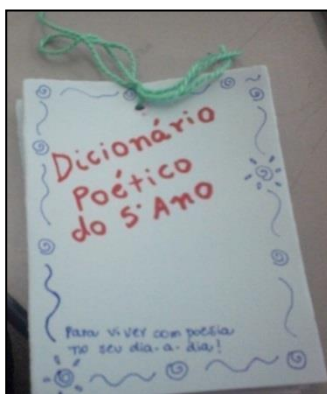 Dicionário
Poético
do 5º Ano
Para viver com poesia
no seu dia-a-dia!